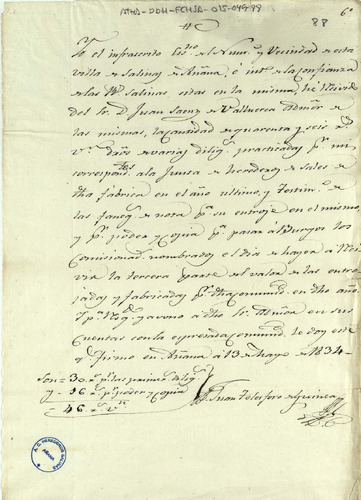 ATHA-DDH-FCHSA-015-049-88
88
6º
Yo el infrascrito Esno. de Num. y Vecindad de esta
villa de Salinas de Añana, é intº. de la Confianza
de las Rs. Salinas sitas en la misma, hé Recivido
del Sr. D. Juan Saenz de Valluerca Admor. de
las mismas, la Cantidad de quarenta y seis rs.
Vn. dros de varias dilig. practicadas pr. mi
correspondtes. a la Junta de herederos de Sales de
dha fabrica en el año ultimo, y testim. de
las faneg. de nota pª. su entroje en el mismo,
y pr. poder y Copia pª. pasar al Burgos los
Comisionad. nombrados el dia de hayer a Reci-
vir la tercera parte el valor de las entro-
jadas y fabricadas pr. dha Comunid. en dho año.
Y pª. Resg. y avono a dho Sr. Admon en sus
Cuentas con la espresada Comunid. le doy este
q. firmo en Añana a 13 de Mayo de 1834
Son = 30. rs. pr. las primeras dilig.
y - 16 rs. pr. poder y Copia
46 rs. Vn.
Juan Telesforo de Guinea
A. C. HEREDEROS SALINAS
AÑANA